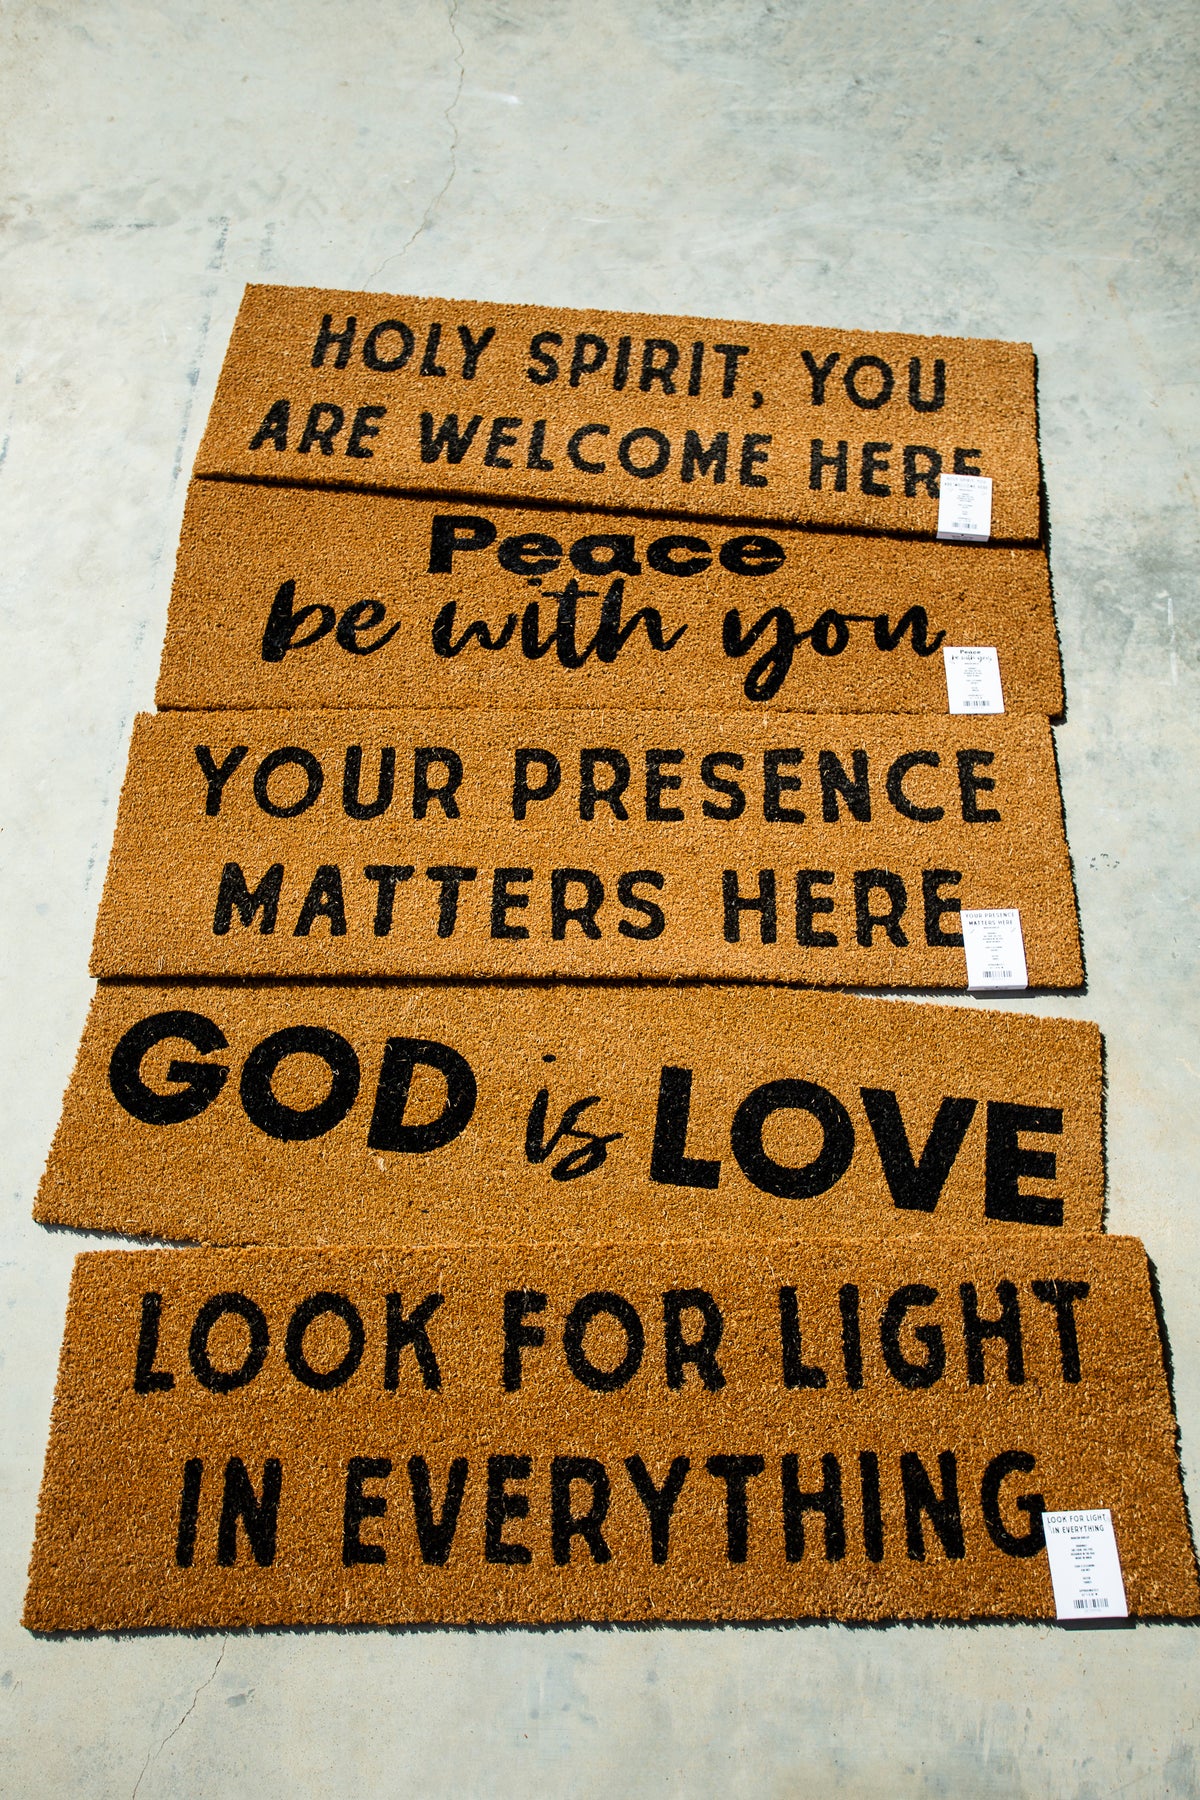 HOLY SPIRIT, YOU
ARE WELCOME HERE
Peace
be with you
Peace
be with you
YOUR PRESENCE
MATTERS HERE
YOUR PRESENCE
MATTERS HERE
GOD is LOVE
LOOK FOR LIGHT
IN EVERYTHING
LOOK FOR LIGHT
IN EVERYTHING